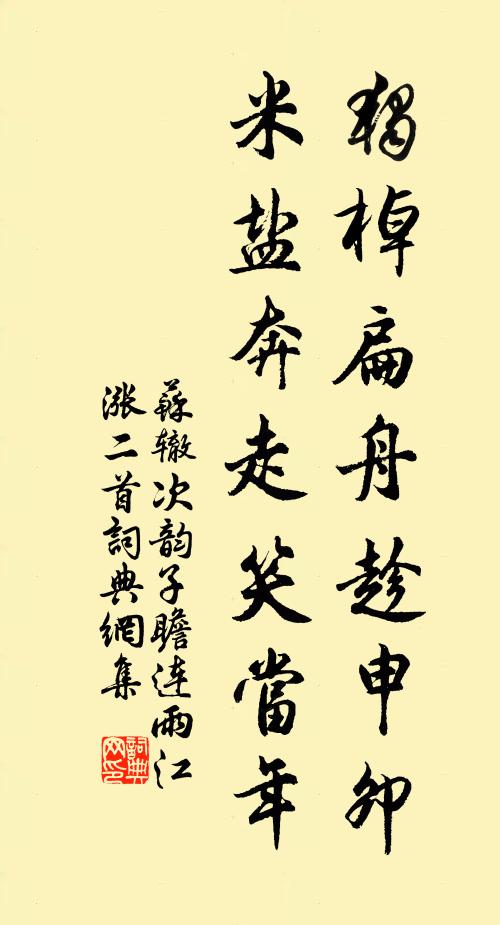 獨棹扁舟趁申卯
米盐奔走笑當年
蘇辙次韵子瞻連雨江
漲二首詞典網集
詞典
网印